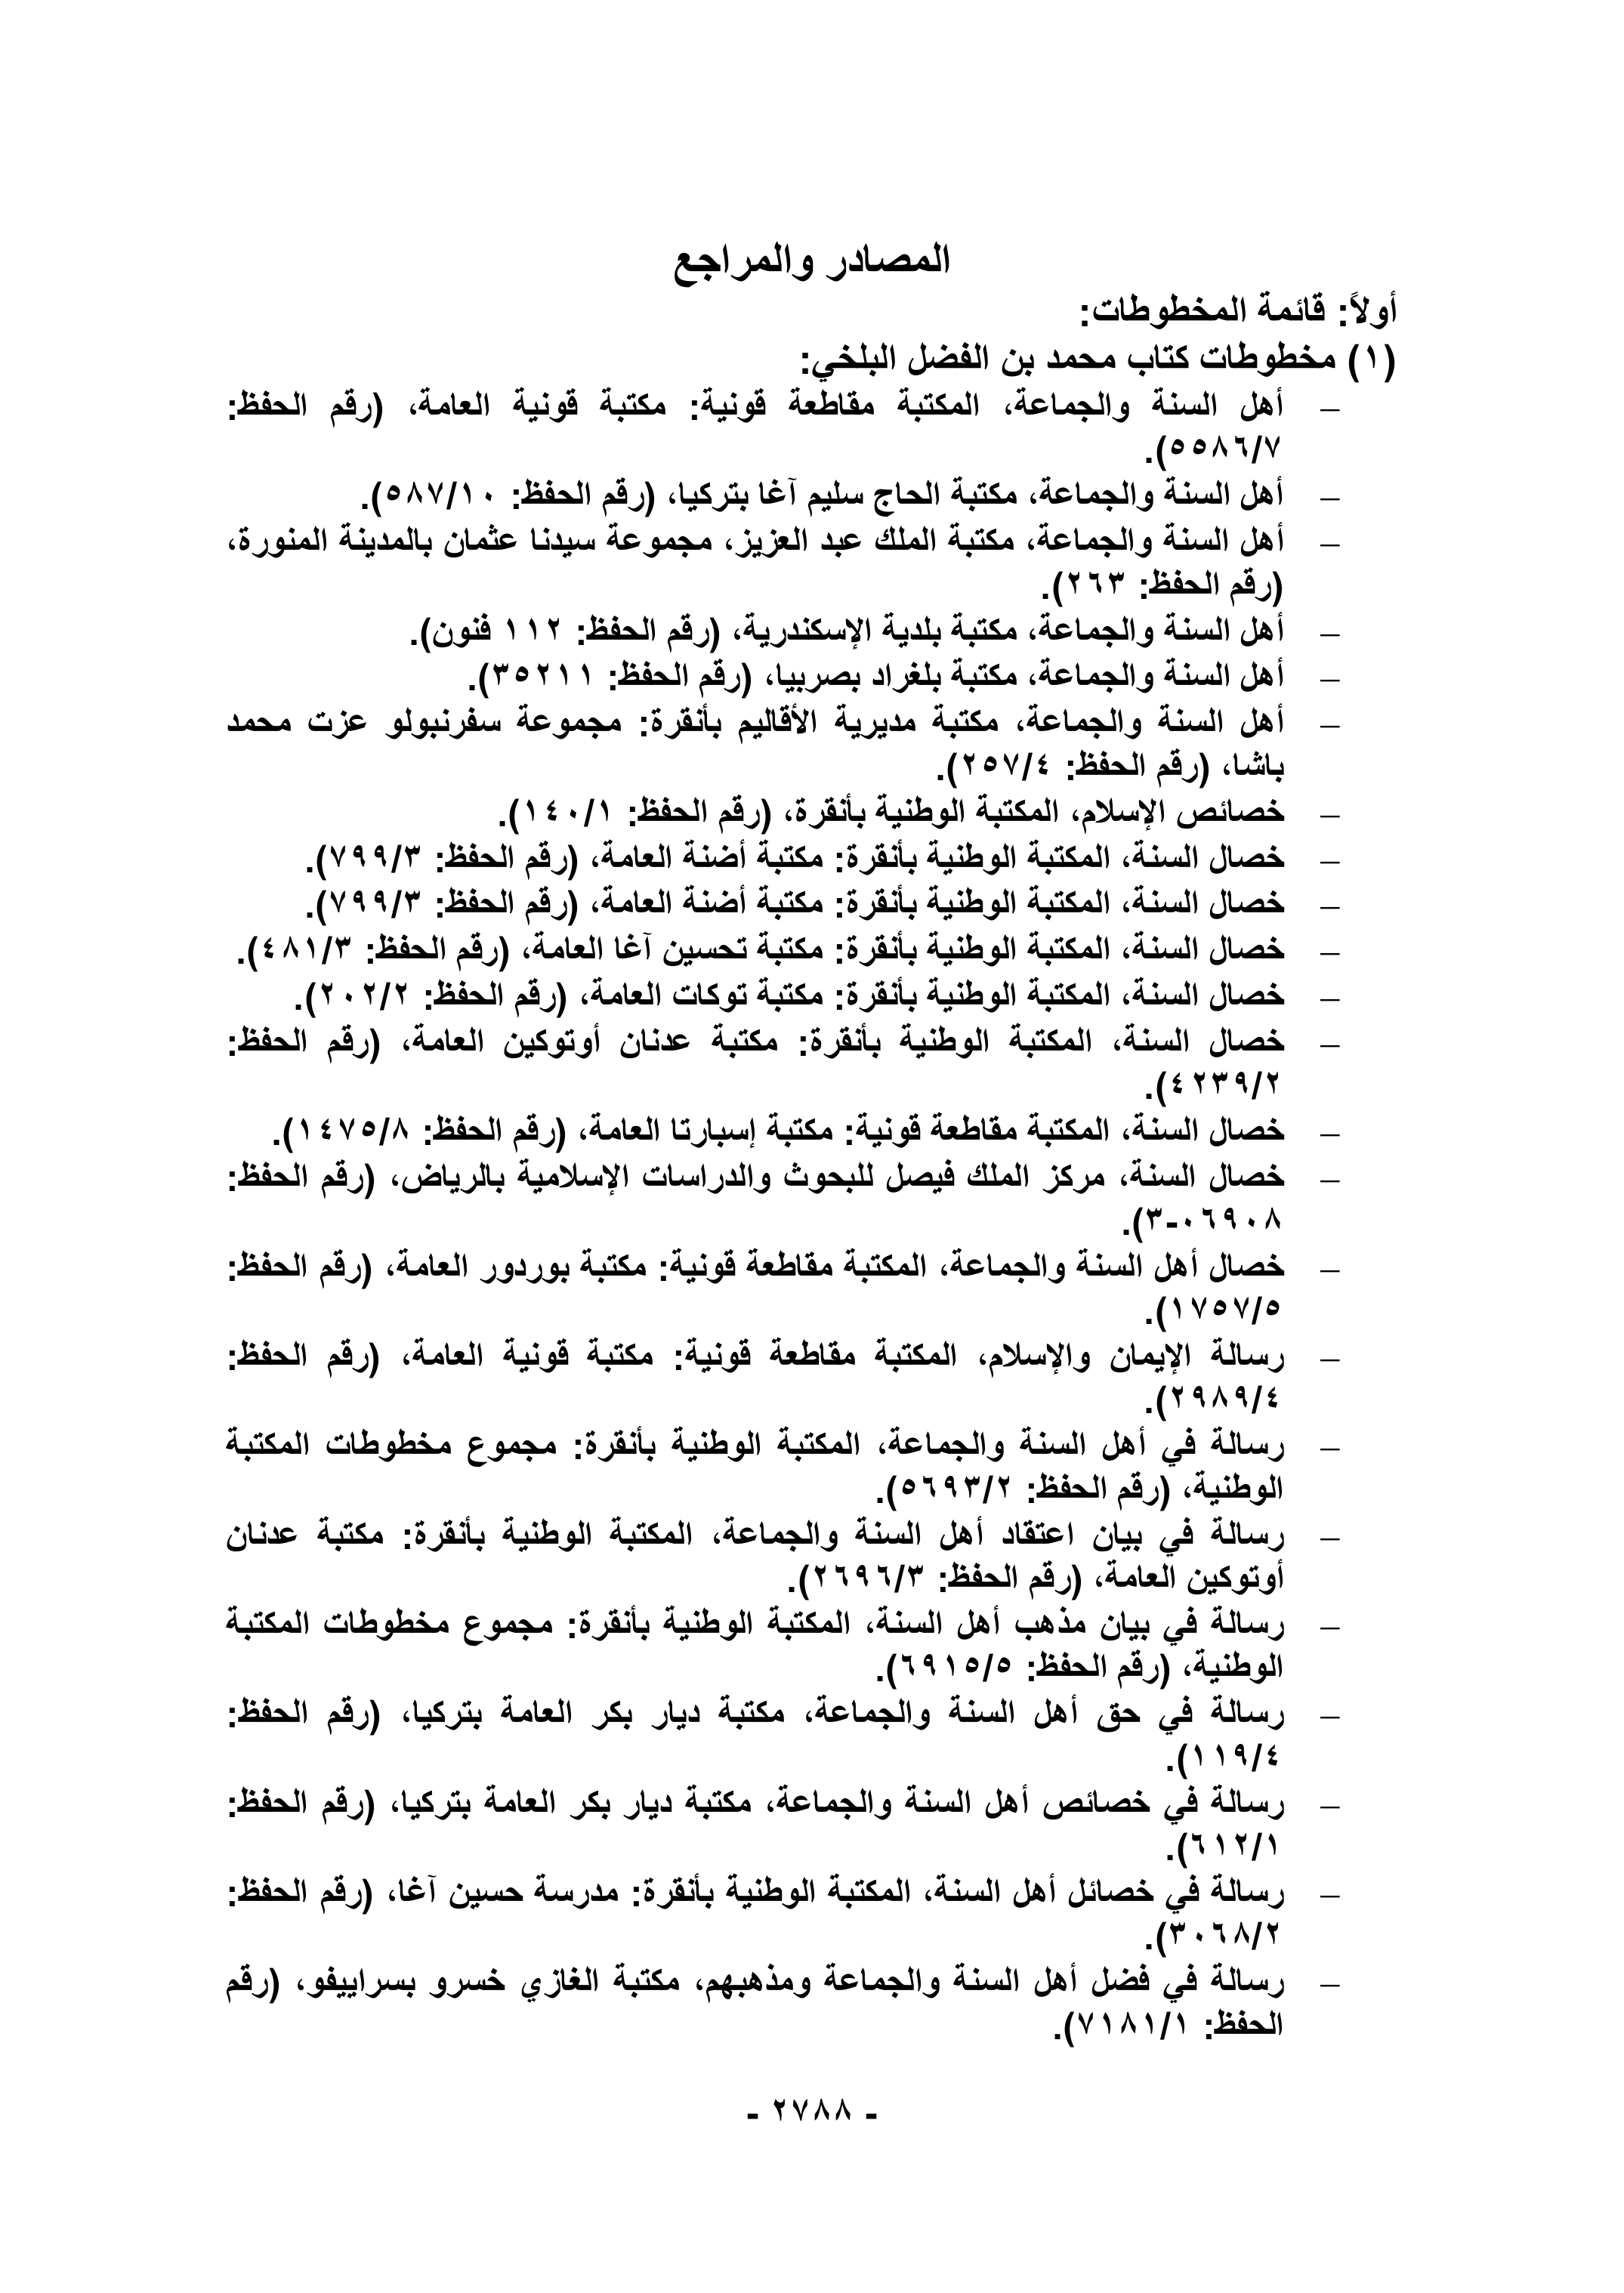 المصادر والمراجع
أولاً: قائمة المخطوطات:
(١) مخطوطات كتاب محمد بن الفضل البلخي:
– أهل السنة والجماعة، المكتبة مقاطعة قونية: مكتبة قونية العامة، (رقم الحفظ:
٥٥٨٦/٧).
– أهل السنة والجماعة، مكتبة الحاج سليم آغا بتركيا، (رقم الحفظ: ٥٨٧/١٠).
– أهل السنة والجماعة، مكتبة الملك عبد العزيز، مجموعة سيدنا عثمان بالمدينة المنورة،
(رقم الحفظ: ٢٦٣).
– أهل السنة والجماعة، مكتبة بلدية الإسكندرية، (رقم الحفظ: ١١٢ فنون).
– أهل السنة والجماعة، مكتبة بلغراد بصربيا، (رقم الحفظ: ٣٥٢١١).
– أهل السنة والجماعة، مكتبة مديرية الأقاليم بأنقرة: مجموعة سفرنبولو عزت محمد
باشا، (رقم الحفظ: ٢٥٧/٤).
– خصائص الإسلام، المكتبة الوطنية بأنقرة، (رقم الحفظ: ١٤٠/١).
– خصال السنة، المكتبة الوطنية بأنقرة: مكتبة أضنة العامة، (رقم الحفظ: ٧٩٩/٣).
– خصال السنة، المكتبة الوطنية بأنقرة: مكتبة أضنة العامة، (رقم الحفظ: ٧٩٩/٣).
– خصال السنة، المكتبة الوطنية بأنقرة: مكتبة تحسين آغا العامة، (رقم الحفظ: ٤٨١/٣).
– خصال السنة، المكتبة الوطنية بأنقرة: مكتبة توكات العامة، (رقم الحفظ: ٢٠٢/٢).
– خصال السنة، المكتبة الوطنية بأنقرة: مكتبة عدنان أوتوكين العامة، (رقم الحفظ:
٤٢٣٩/٢).
– خصال السنة، المكتبة مقاطعة قونية: مكتبة إسبارتا العامة، (رقم الحفظ: ١٤٧٥/٨).
– خصال السنة، مركز الملك فيصل للبحوث والدراسات الإسلامية بالرياض، (رقم الحفظ:
٠٦٩٠٨-٣).
– خصال أهل السنة والجماعة، المكتبة مقاطعة قونية: مكتبة بوردور العامة، (رقم الحفظ:
١٧٥٧/٥).
– رسالة الإيمان والإسلام، المكتبة مقاطعة قونية: مكتبة قونية العامة، (رقم الحفظ:
٢٩٨٩/٤).
– رسالة في أهل السنة والجماعة، المكتبة الوطنية بأنقرة: مجموع مخطوطات المكتبة
الوطنية، (رقم الحفظ: ٥٦٩٣/٢).
– رسالة في بيان اعتقاد أهل السنة والجماعة، المكتبة الوطنية بأنقرة: مكتبة عدنان
أوتوكين العامة، (رقم الحفظ: ٢٦٩٦/٣).
– رسالة في بيان مذهب أهل السنة، المكتبة الوطنية بأنقرة: مجموع مخطوطات المكتبة
الوطنية، (رقم الحفظ: ٦٩١٥/٥).
– رسالة في حق أهل السنة والجماعة، مكتبة ديار بكر العامة بتركيا، (رقم الحفظ:
١١٩/٤).
– رسالة في خصائص أهل السنة والجماعة، مكتبة ديار بكر العامة بتركيا، (رقم الحفظ:
٦١٢/١).
– رسالة في خصائل أهل السنة، المكتبة الوطنية بأنقرة: مدرسة حسين آغا، (رقم الحفظ:
٣٠٦٨/٢).
– رسالة في فضل أهل السنة والجماعة ومذهبهم، مكتبة الغازي خسرو بسراييفو، (رقم
الحفظ: ٧١٨١/١).
- ٢٧٨٨ -